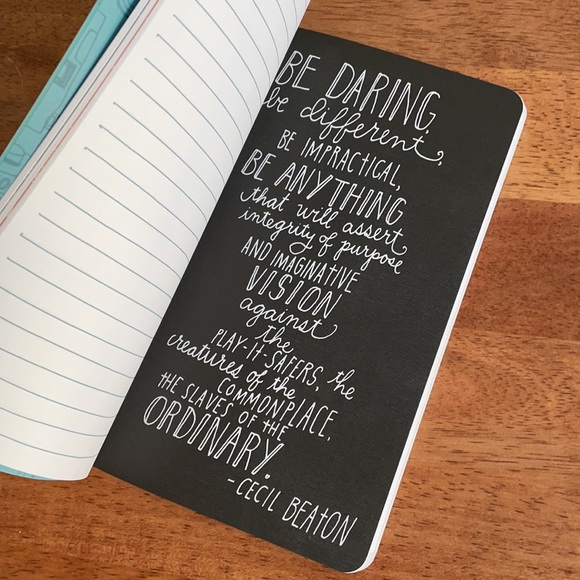 BE DARING,
be different,
BE IMPRACTICAL,
BE ANYTHING
that will assert
integrity of purpose
AND IMAGINATIVE
VISION
against
the
PLAY-IT-SAFERS, the
creatures of the
COMMONPLACE,
THE SLAVES OF THE
ORDINARY.
- CECIL BEATON